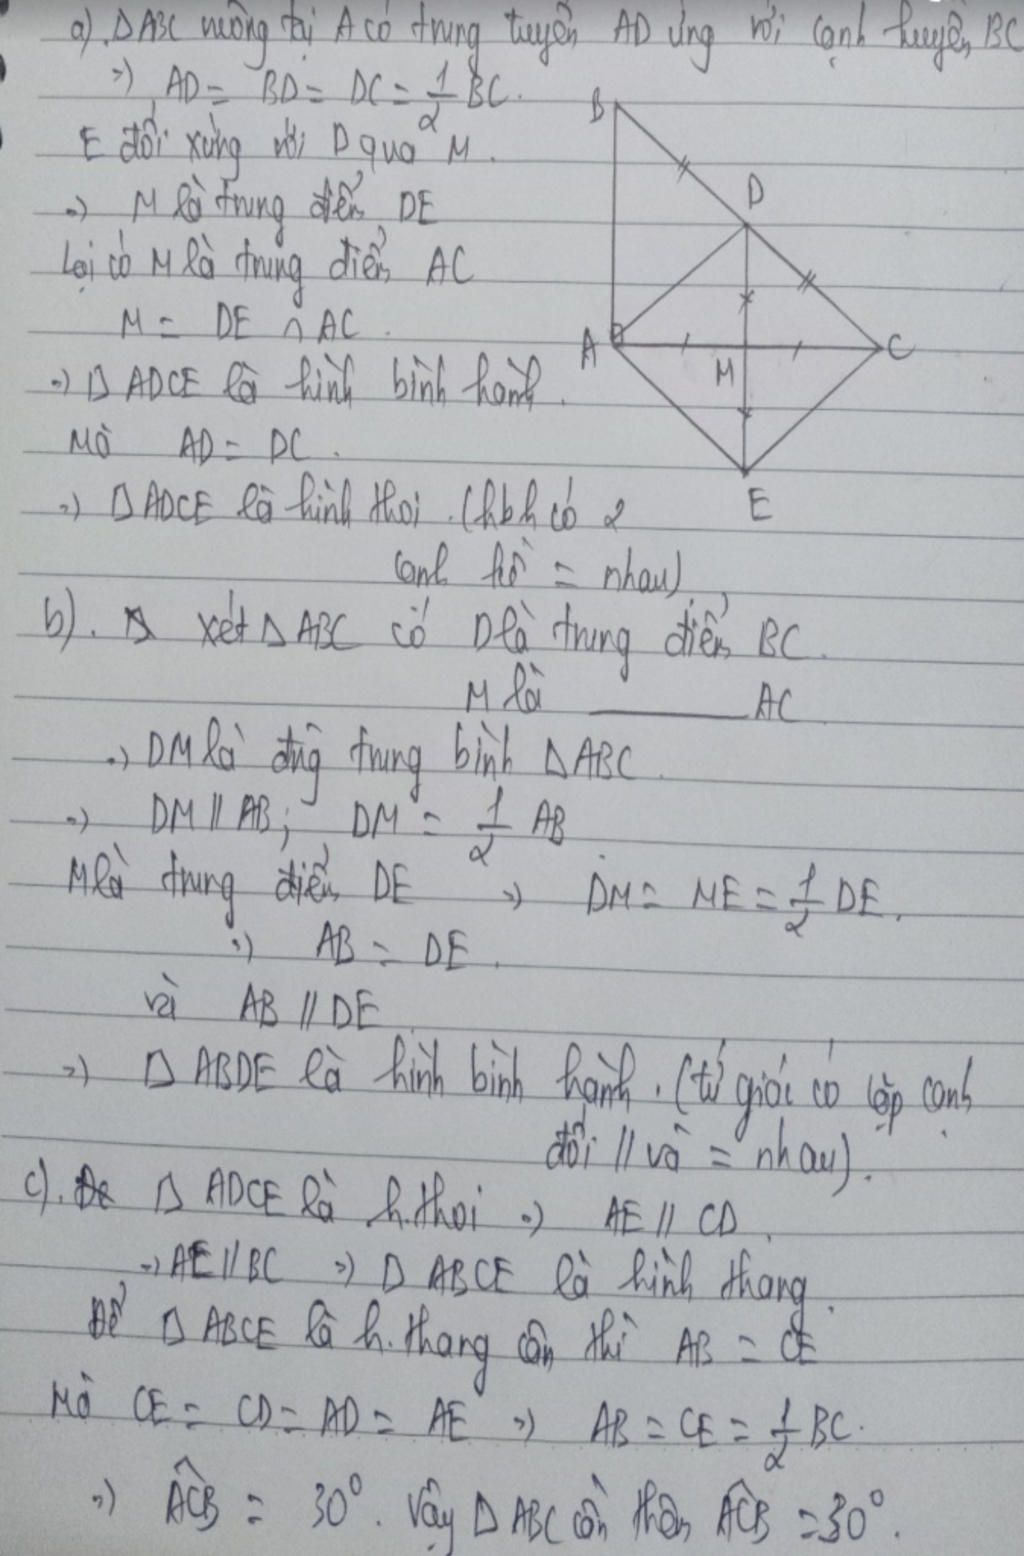 a). △ABC vuông tại A có trung tuyến AD ứng với cạnh huyền BC
=> AD = BD = DC = 1/2 BC.
E đối xứng với D qua M.
=> M là trung điểm DE
Lại có M là trung điểm AC
M = DE ∩ AC.
=> ◻ ADCE là hình bình hành.
Mà AD = DC.
=> ◻ ADCE là hình thoi. (hbh có 2
cạnh kề = nhau)
B
D
A
M
C
E
b). xét △ABC có D là trung điểm BC.
M là ______ AC
=> DM là đg trung bình △ABC.
=> DM // AB; DM = 1/2 AB
M là trung điểm DE => DM = ME = 1/2 DE.
=> AB = DE.
và AB // DE
=> ◻ ABDE là hình bình hành. (tứ giác có cặp cạnh
đối // và = nhau).
c). ◻ ADCE là h.thoi => AE // CD.
=> AE // BC => ◻ ABCE là hình thang.
Để ◻ ABCE là h.thang cân thì AB = CE
Mà CE = CD = AD = AE => AB = CE = 1/2 BC.
=> ACB̂ = 30°. Vậy △ABC cần thêm ACB̂ = 30°.